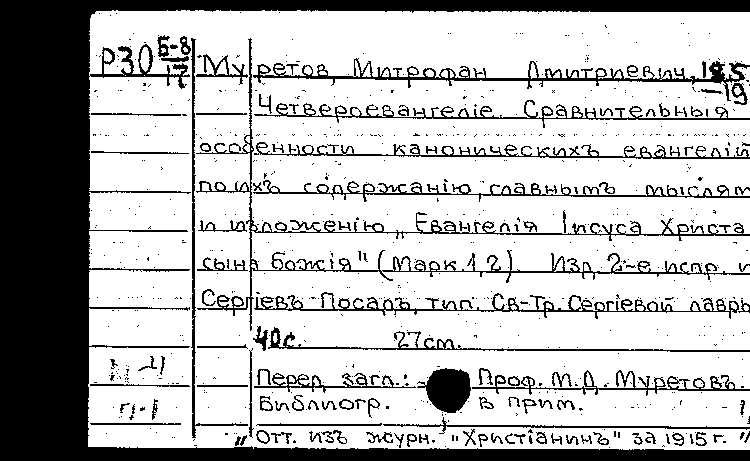 Р30 Б-8/17
Муретов, Митрофан Дмитриевич, 185
-19
Четвероевангеліе. Сравнительныя
особенности каноническихъ евангелій
по ихъ содержанію, главнымъ мыслям
и изложенію „Евангелія Іисуса Христа
сына Божія" (Марк. 1, 2). Изд. 2-е, испр. и
Сергіевъ Посадъ, тип. Св-Тр. Сергіевой лавры
40с. 27см.
Перед загл.: Проф. М.Д. Муретовъ.
Библиогр. в прим.
„Отт. изъ журн. "Христіанинъ" за 1915 г. "